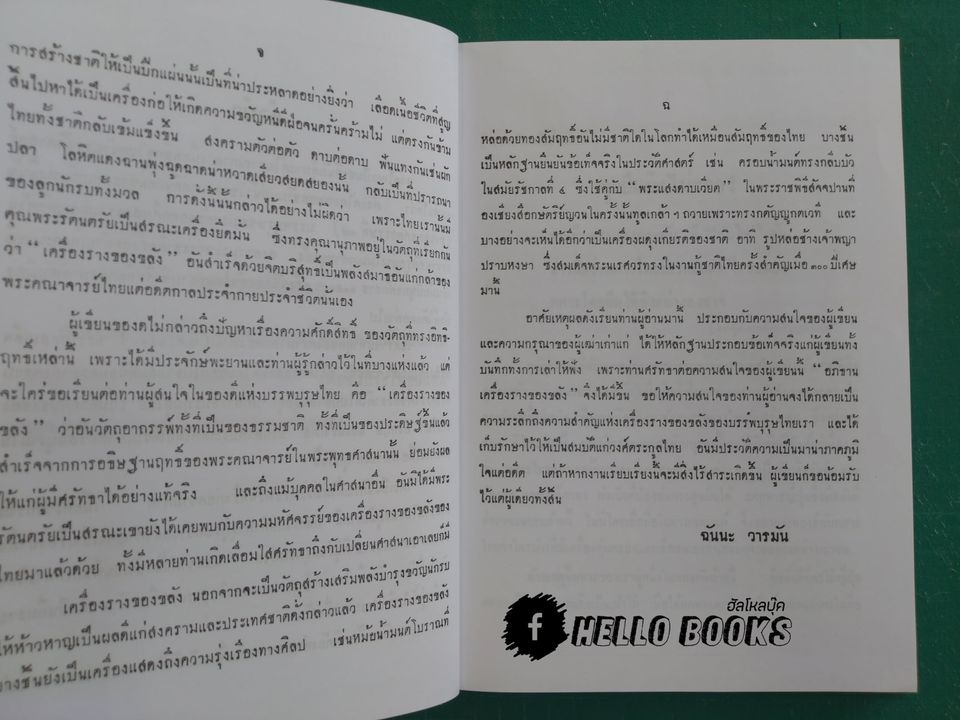 จ
การสร้างชาติให้เป็นปึกแผ่นนั้นเป็นที่น่าประหลาดอย่างยิ่งว่า เลือดเนื้อชีวิตที่สูญ
สิ้นไปหาได้เป็นเครื่องก่อให้เกิดความขวัญหนีดีฝ่อจนครั่นคร้ามไม่ แต่ตรงกันข้าม
ไทยทั้งชาติกลับเข้มแข็งขึ้น สงครามตัวต่อตัว ดาบต่อดาบ ฟันแทงกันเช่นผัก
ปลา โลหิตแดงฉานพุ่งฉูดฉาดน่าหวาดเสียวสยดสยองนั้น กลับเป็นที่ปรารถนา
ของลูกนักรบทั้งมวล การดังนั้นนี้กล่าวได้อย่างไม่ผิดว่า เพราะไทยเรานั้นมี
คุณพระรัตนตรัยเป็นสรณะเครื่องยึดมั่น ซึ่งทรงคุณานุภาพอยู่ในวัตถุที่เรียกกัน
ว่า “เครื่องรางของขลัง” อันสำเร็จด้วยจิตบริสุทธิ์เป็นพลังสมาธิอันแก่กล้าของ
พระคณาจารย์ไทยแต่อดีตกาลประจำกายประจำชีวิตนั่นเอง
ผู้เขียนของดไม่กล่าวถึงปัญหาเรื่องความศักดิ์สิทธิ์ ของวัตถุที่ทรงอิทธิ-
ฤทธิ์เหล่านี้ เพราะได้มีประจักษ์พะยานและท่านผู้รู้กล่าวไว้ในที่บางแห่งแล้ว แต่
จะใคร่ขอเรียนต่อท่านผู้สนใจในของดีแห่งบรรพบุรุษไทย คือ “เครื่องรางของ
ขลัง” ว่าอันวัตถุอาถรรพ์ทั้งที่เป็นของธรรมชาติ ทั้งที่เป็นของประดิษฐ์ขึ้นแล้ว
สำเร็จจากการอธิษฐานฤทธิ์ของพระคณาจารย์ในพระพุทธศาสนานั้น ย่อมยังผล
ให้แก่ผู้มีศรัทธาได้อย่างแท้จริง และถึงแม้บุคคลในศาสนาอื่น อันมิได้มีพระ
รัตนตรัยเป็นสรณะเขายังได้เคยพบกับความมหัศจรรย์ของเครื่องรางของขลังของ
ไทยมาแล้วด้วย ทั้งมีหลายท่านเกิดเลื่อมใสศรัทธาถึงกับเปลี่ยนศาสนาเอาเลยก็มี
เครื่องรางของขลัง นอกจากจะเป็นวัตถุสร้างเสริมพลังบำรุงขวัญนักรบ
ให้ห้าวหาญเป็นผลดีแก่สงครามและประเทศชาติดังกล่าวแล้ว เครื่องรางของขลัง
บางชิ้นยังเป็นเครื่องแสดงถึงความรุ่งเรืองทางศิลป เช่นหม้อน้ำมนต์โบราณที่
ฉ
หล่อด้วยทองสัมฤทธิ์อันไม่มีชาติใดในโลกทำได้เหมือนสัมฤทธิ์ของไทย บางชิ้น
เป็นหลักฐานยืนยันข้อเท็จจริงในประวัติศาสตร์ เช่น ครอบน้ำมนต์ทรงกลีบบัว
ในสมัยรัชกาลที่ ๔ ซึ่งใช้คู่กับ “พระแสงดาบเวียด” ในพระราชพิธีสัจจปานที่
องเชียงสือกษัตริย์ญวนในครั้งนั้นทูลเกล้า ฯ ถวายเพราะทรงกตัญญูกตเวที และ
บางอย่างจะเห็นได้อีกว่าเป็นเครื่องผดุงเกียรติของชาติ อาทิ รูปหล่อช้างเจ้าพญา
ปราบหงษา ซึ่งสมเด็จพระนเรศวรทรงในงานกู้ชาติไทยครั้งสำคัญเมื่อ ๓๐๐ ปีเศษ
มานี้
อาศัยเหตุผลดังเรียนท่านผู้อ่านมานี้ ประกอบกับความสนใจของผู้เขียน
และความกรุณาของผู้เฒ่าเก่าแก่ ได้ให้หลักฐานประกอบข้อเท็จจริงแก่ผู้เขียนทั้ง
บันทึกทั้งการเล่าให้ฟัง เพราะท่านศรัทธาต่อความสนใจของผู้เขียนนี้ “อภิธาน
เครื่องรางของขลัง” จึงได้มีขึ้น ขอให้ความสนใจของท่านผู้อ่านจงได้กลายเป็น
ความระลึกถึงความสำคัญแห่งเครื่องรางของขลังของบรรพบุรุษไทยเรา และได้
เก็บรักษาไว้ให้เป็นสมบัติแก่วงศ์ตระกูลไทย อันมีประวัติความเป็นมาน่าภาคภูมิ
ใจแต่อดีต แต่ถ้าหากงานเรียบเรียงนี้จะมีสิ่งไร้สาระเกิดขึ้น ผู้เขียนก็ขอน้อมรับ
ไว้แต่ผู้เดียวทั้งสิ้น
ฉันนะ วารมัน
ฮัลโหลบุ๊ค
f HELLO BOOKS